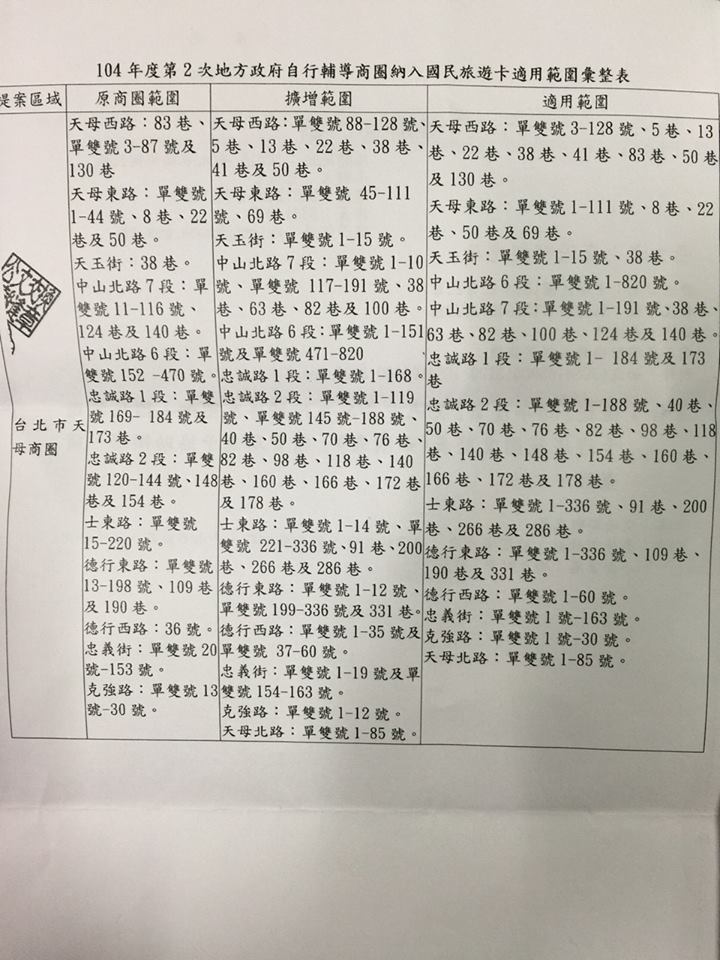 104 年度第 2 次地方政府自行輔導商圈納入國民旅遊卡適用範圍彙整表
提案區域
原商圈範圍
擴增範圍
適用範圍
台北市天
母商圈
天母西路：83 巷、
單雙號 3-87 號及
130 巷
天母東路：單雙號
1-44 號、8 巷、22
巷及 50 巷。
天玉街：38 巷。
中山北路 7 段：單
雙號 11-116 號、
124 巷及 140 巷。
中山北路 6 段：單
雙號 152 -470 號。
忠誠路 1 段：單雙
號 169- 184 號及
173 巷。
忠誠路 2 段：單雙
號 120-144 號、148
巷及 154 巷。
士東路：單雙號
15-220 號。
德行東路：單雙號
13-198 號、109 巷
及 190 巷。
德行西路：36 號。
忠義街：單雙號 20
號-153 號。
克強路：單雙號 13
號-30 號。
天母西路：單雙號 88-128 號、
5 巷、13 巷、22 巷、38 巷、
41 巷及 50 巷。
天母東路：單雙號 45-111
號、69 巷。
天玉街：單雙號 1-15 號。
中山北路 7 段：單雙號 1-10
號、單雙號 117-191 號、38
巷、63 巷、82 巷及 100 巷。
中山北路 6 段：單雙號 1-151
號及單雙號 471-820
忠誠路 1 段：單雙號 1-168。
忠誠路 2 段：單雙號 1-119
號、單雙號 145 號-188 號、
40 巷、50 巷、70 巷、76 巷、
82 巷、98 巷、118 巷、140
巷、160 巷、166 巷、172 巷
及 178 巷。
士東路：單雙號 1-14 號、單
雙號 221-336 號、91 巷、200
巷、266 巷及 286 巷。
德行東路：單雙號 1-12 號、
單雙號 199-336 號及 331 巷。
德行西路：單雙號 1-35 號及
單雙號 37-60 號。
忠義街：單雙號 1-19 號及單
雙號 154-163 號。
克強路：單雙號 1-12 號。
天母北路：單雙號 1-85 號。
天母西路：單雙號 3-128 號、5 巷、13
巷、22 巷、38 巷、41 巷、83 巷、50 巷
及 130 巷。
天母東路：單雙號 1-111 號、8 巷、22
巷、50 巷及 69 巷。
天玉街：單雙號 1-15 號、38 巷。
中山北路 6 段：單雙號 1-820 號。
中山北路 7 段：單雙號 1-191 號、38 巷、
63 巷、82 巷、100 巷、124 巷及 140 巷。
忠誠路 1 段：單雙號 1- 184 號及 173
巷
忠誠路 2 段：單雙號 1-188 號、40 巷、
50 巷、70 巷、76 巷、82 巷、98 巷、118
巷、140 巷、148 巷、154 巷、160 巷、
166 巷、172 巷及 178 巷。
士東路：單雙號 1-336 號、91 巷、200
巷、266 巷及 286 巷。
德行東路：單雙號 1-336 號、109 巷、
190 巷及 331 巷。
德行西路：單雙號 1-60 號。
忠義街：單雙號 1 號-163 號。
克強路：單雙號 1 號-30 號。
天母北路：單雙號 1-85 號。